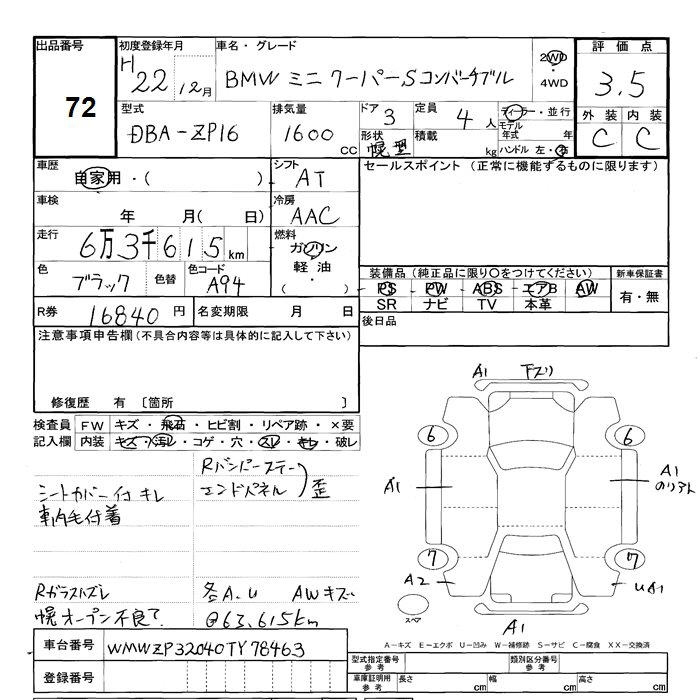 出品番号 初度登録年月 車名・グレード 評価点
72
H22 12月 BMW ミニ クーパーS コンバーチブル 2WD ・ 4WD 3.5
型式 排気量 ドア 定員 ディーラー・並行 外装 内装
DBA-ZP16 1600 cc 3 4人 モデル年式 年 C C
形状 積載 kg ハンドル 左・右
幌型
車歴 シフト セールスポイント (正常に機能するものに限ります)
自家用・( ) AT
車検 年 月( 日) 冷房 AAC
走行 6万3千615km 燃料 ガソリン・軽油・( )
色 ブラック 色替 色コード A94 装備品(純正品に限り○をつけてください) 新車保証書
PS PW ABS エアB AW 有・無
SR ナビ TV 本革
R券 16840円 名変期限 月 日 後日品
注意事項申告欄(不具合内容等は具体的に記入して下さい)
修復歴 有 〔箇所 〕
検査員 FW キズ・飛石・ヒビ割・リペア跡・×要
記入欄 内装 キズ・汚レ・コゲ・穴・スレ・キレ・破レ
Rバンパーステー
エンドパネル 歪
シートカバー付 キレ
車内毛付着
Rガラスハズレ 各A.U AWキズ
幌オープン不良て @63,615km
A1 下ズリ
6 6
A1 A1
のリアト
7 7
A2 UA1
スペア
A1
A-キズ E-エクボ U-凹み W-補修跡 S-サビ C-腐食 XX-交換済
車台番号 WMWZP32040TY78463
型式指定番号 参考 類別区分番号 参考
登録番号
車庫証明用 参考 長さ cm 幅 cm 高さ cm